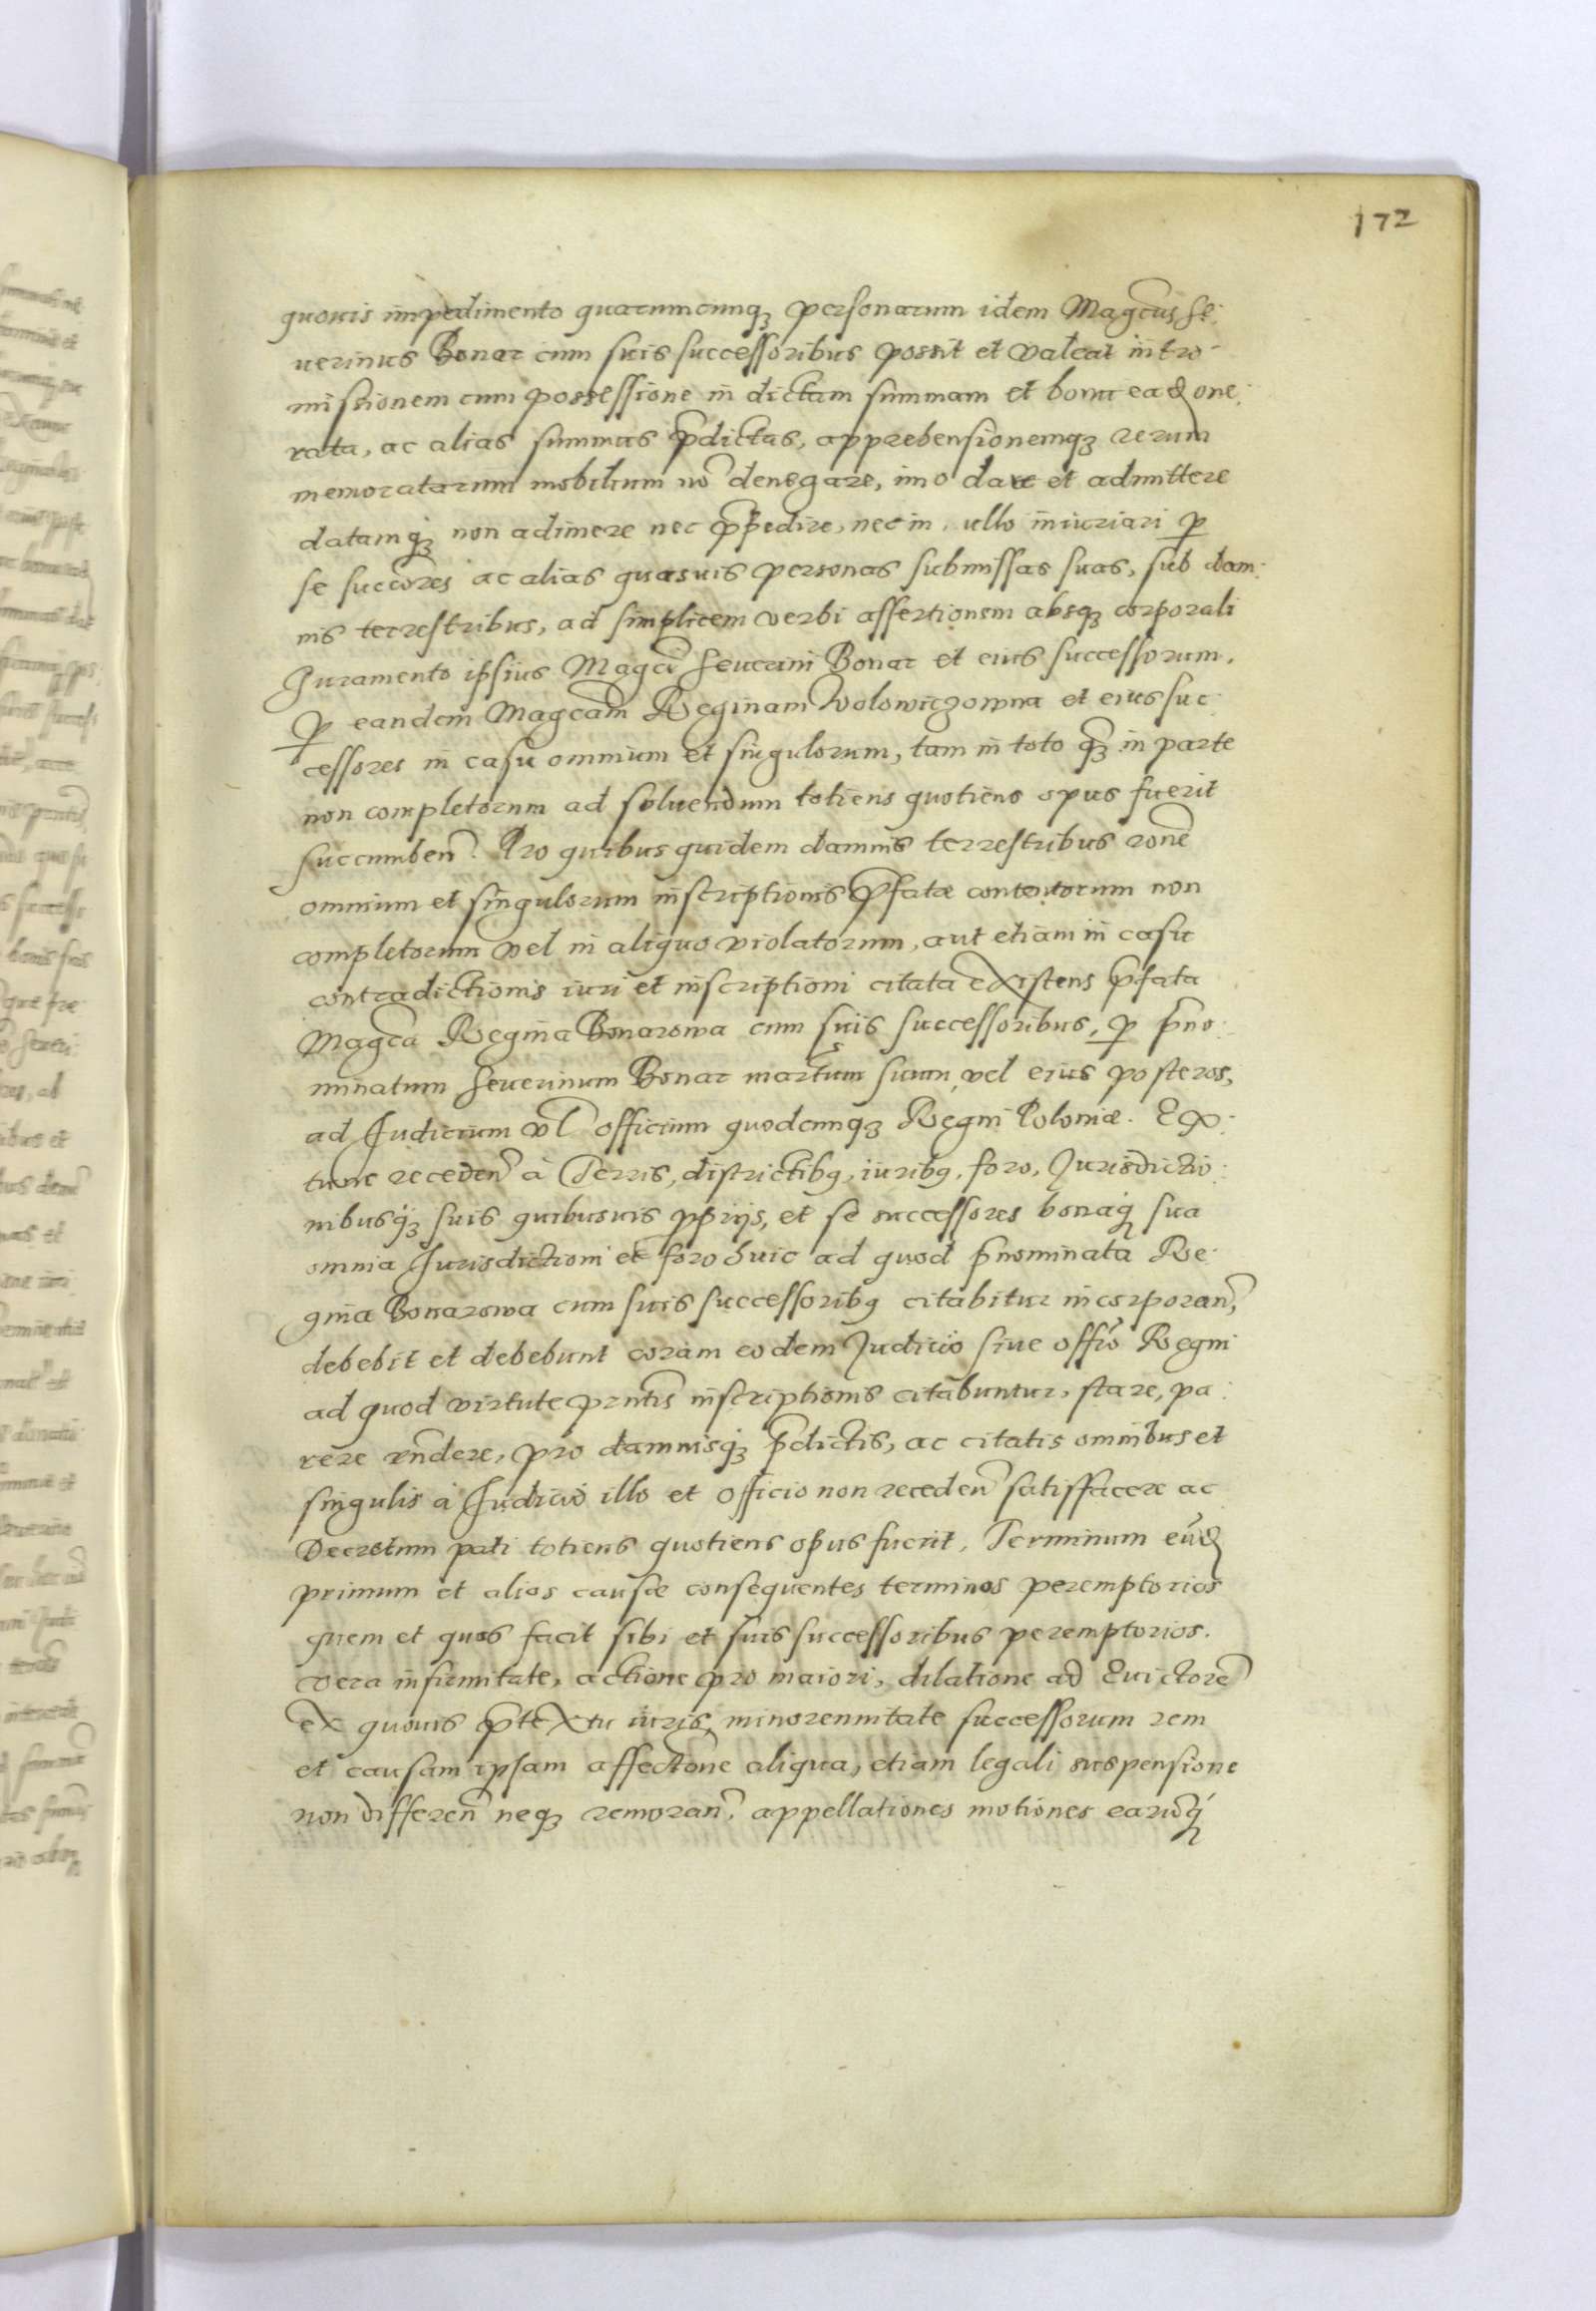 172
quouis impedimento quarumcunqꝫ personarum idem Magcus Se:
uerinus Bonar cum suis successoribus possit et valeat intro-
missionem cum possessione in dictam summam et bona ead one:
rata, ac alias summas p̄dictas, apprehensionemqꝫ rerum
memoratarum mobilium nō denegare, imo dare et admittere
datamqꝫ non adimere nec p̄pedire, nec in ullo iniuriari ꝑ
se succōres ac alias quasuis personas submissas suas, sub dam:
nis terrestribus, ad simplicem verbi assertionem absqꝫ corporali
Juramento ipsius Magci Seuerini Bonar et eius successorum.
ꝑ eandem Magcam Reginam Wolowiczowna et eius suc
cessores in casu omnium et singulorum, tam in toto qꝫ in parte
non completorum ad soluendum totiens quotiens opus fuerit
succumben̄. Pro quibus quidem damnis terrestribus rōne
omnium et singulorum inscriptionis p̄fatæ contentorum non
completorum vel in aliquo violatorum, aut etiam in casu
contradictionis iuri et inscriptioni citata existens p̄fata
Magca Regina Bonarowa cum suis successoribus, ꝑ p̄no:
minatum Seuerinum Bonar martum suum, vel eius posteros,
ad Judicium vl̄ officium quodcunqꝫ Regni Poloniæ. Ex:
tunc receden̄ à Terris, districtibꝰ, iuribꝰ, foro, Jurisdictio:
nibusqꝫ suis quibusuis ꝓprijs, et se successores bonaqꝫ sua
omnia Jurisdictioni et foro huic ad quod p̄nominata Re:
gina Bonarowa cum suis successoribꝰ citabitur incorporan̄,
debebit et debebunt coram eodem Judicio siue offīo Regni
ad quod virtute prntis inscriptionis citabuntur, stare, pa:
rere rn̄dere, pro damnisqꝫ p̄dictis, ac citatis omnibus et
singulis à Judicio illo et officio non receden̄ satisfacere ac
Decretum pati totiens quotiens opus fuerit, Terminum eūd
primum et alios causæ consequentes terminos peremptorios
quem et quos facit sibi et suis successoribus peremptorios.
vera infirmitate, actione pro maiori, dilatione ad Euictorē
ex quouis p̄textu iuris, minorennitate successorum rem
et causam ipsam affectōne aliqua, etiam legali suspensione
non differen̄ neqꝫ remoran̄, appellationes motiones earūqꝫ